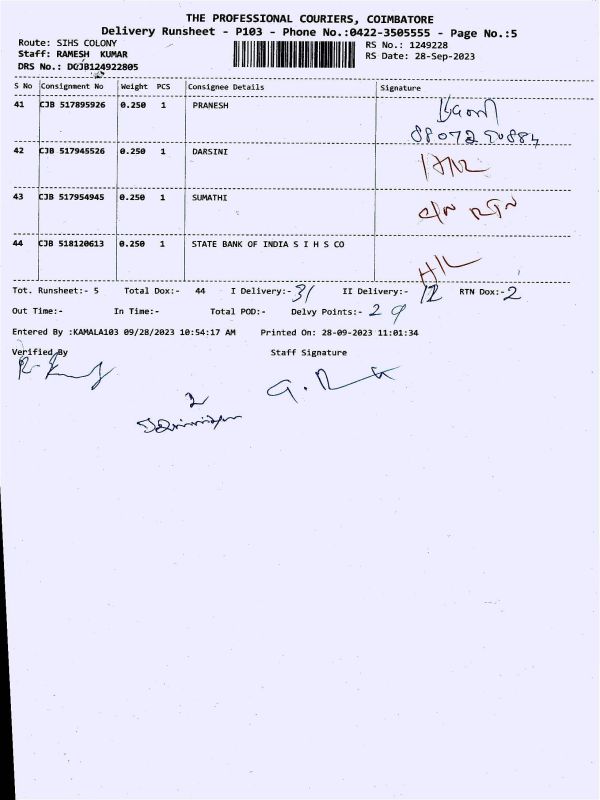 THE PROFESSIONAL COURIERS, COIMBATORE
Delivery Runsheet - P103 - Phone No.:0422-3505555 - Page No.:5
Route: SIHS COLONY
RS No.: 1249228
Staff: RAMESH KUMAR
RS Date: 28-Sep-2023
DRS No.: DCJB124922805
S No Consignment No Weight PCS Consignee Details Signature
41 CJB 517895926 0.250 1 PRANESH
42 CJB 517945526 0.250 1 DARSINI
43 CJB 517954945 0.250 1 SUMATHI
44 CJB 518120613 0.250 1 STATE BANK OF INDIA S I H S CO
Tot. Runsheet:- 5 Total Dox:- 44 I Delivery:- 31 II Delivery:- 12 RTN Dox:- 2
Out Time:- In Time:- Total POD:- Delvy Points:- 29
Entered By :KAMALA103 09/28/2023 10:54:17 AM Printed On: 28-09-2023 11:01:34
Verified By Staff Signature
2